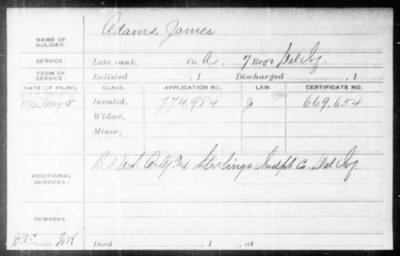 NAME OF SOLDIER: Adams James
SERVICE: Late rank, Co. A, 7 Reg't Del Inf.
TERM OF SERVICE: Enlisted , 1 Discharged , 1
DATE OF FILING. CLASS. APPLICATION NO. LAW. CERTIFICATE NO.
Invalid, 774.984 J 669.654
Widow,
Minor,
ADDITIONAL SERVICES: Co. Del Inf.
REMARKS:
Died , 1 , at